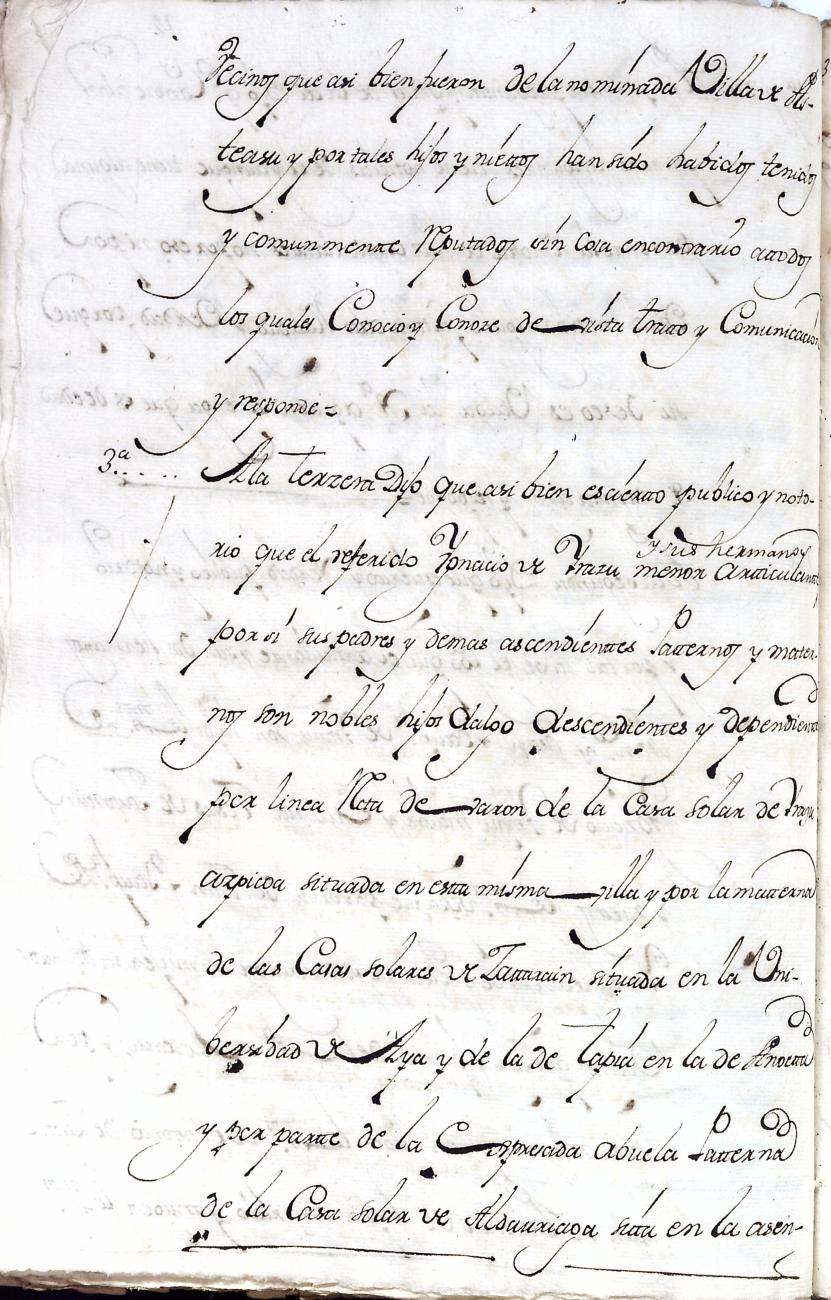 Vecinos que asi bien fueron de la nominada Villa de As-
teasu y por tales hijos y niettos han sido habidos tenidos
y comunmentte Reputados sin cosa encontrario a ttodos
los quales Conocio y Conoze de vista tratto y Comunicacion
y responde=
3ª.. . . . . Ala terzera Dijo que asi bien es ciertto publico y noto-
y sus hermanos
rio que el referido Ygnacio de Yrazu menor artticulantte
por si sus padres y demas ascendienttes Patternos y matter-
nos son nobles hijos dalgo descendienttes y dependienttes
por linea Recta de varon de la Casa solar de Yrazu
azpicoa situada en esta misma villa y por la matterna
de las Casas solares de Lattarain situada en la Uni-
bersidad de Aya y de la de tapia en la de Anoetta
y por partte de la Expresada abuela Patterna
de la Casa solar de Aldaurriaga sitta en la asen-